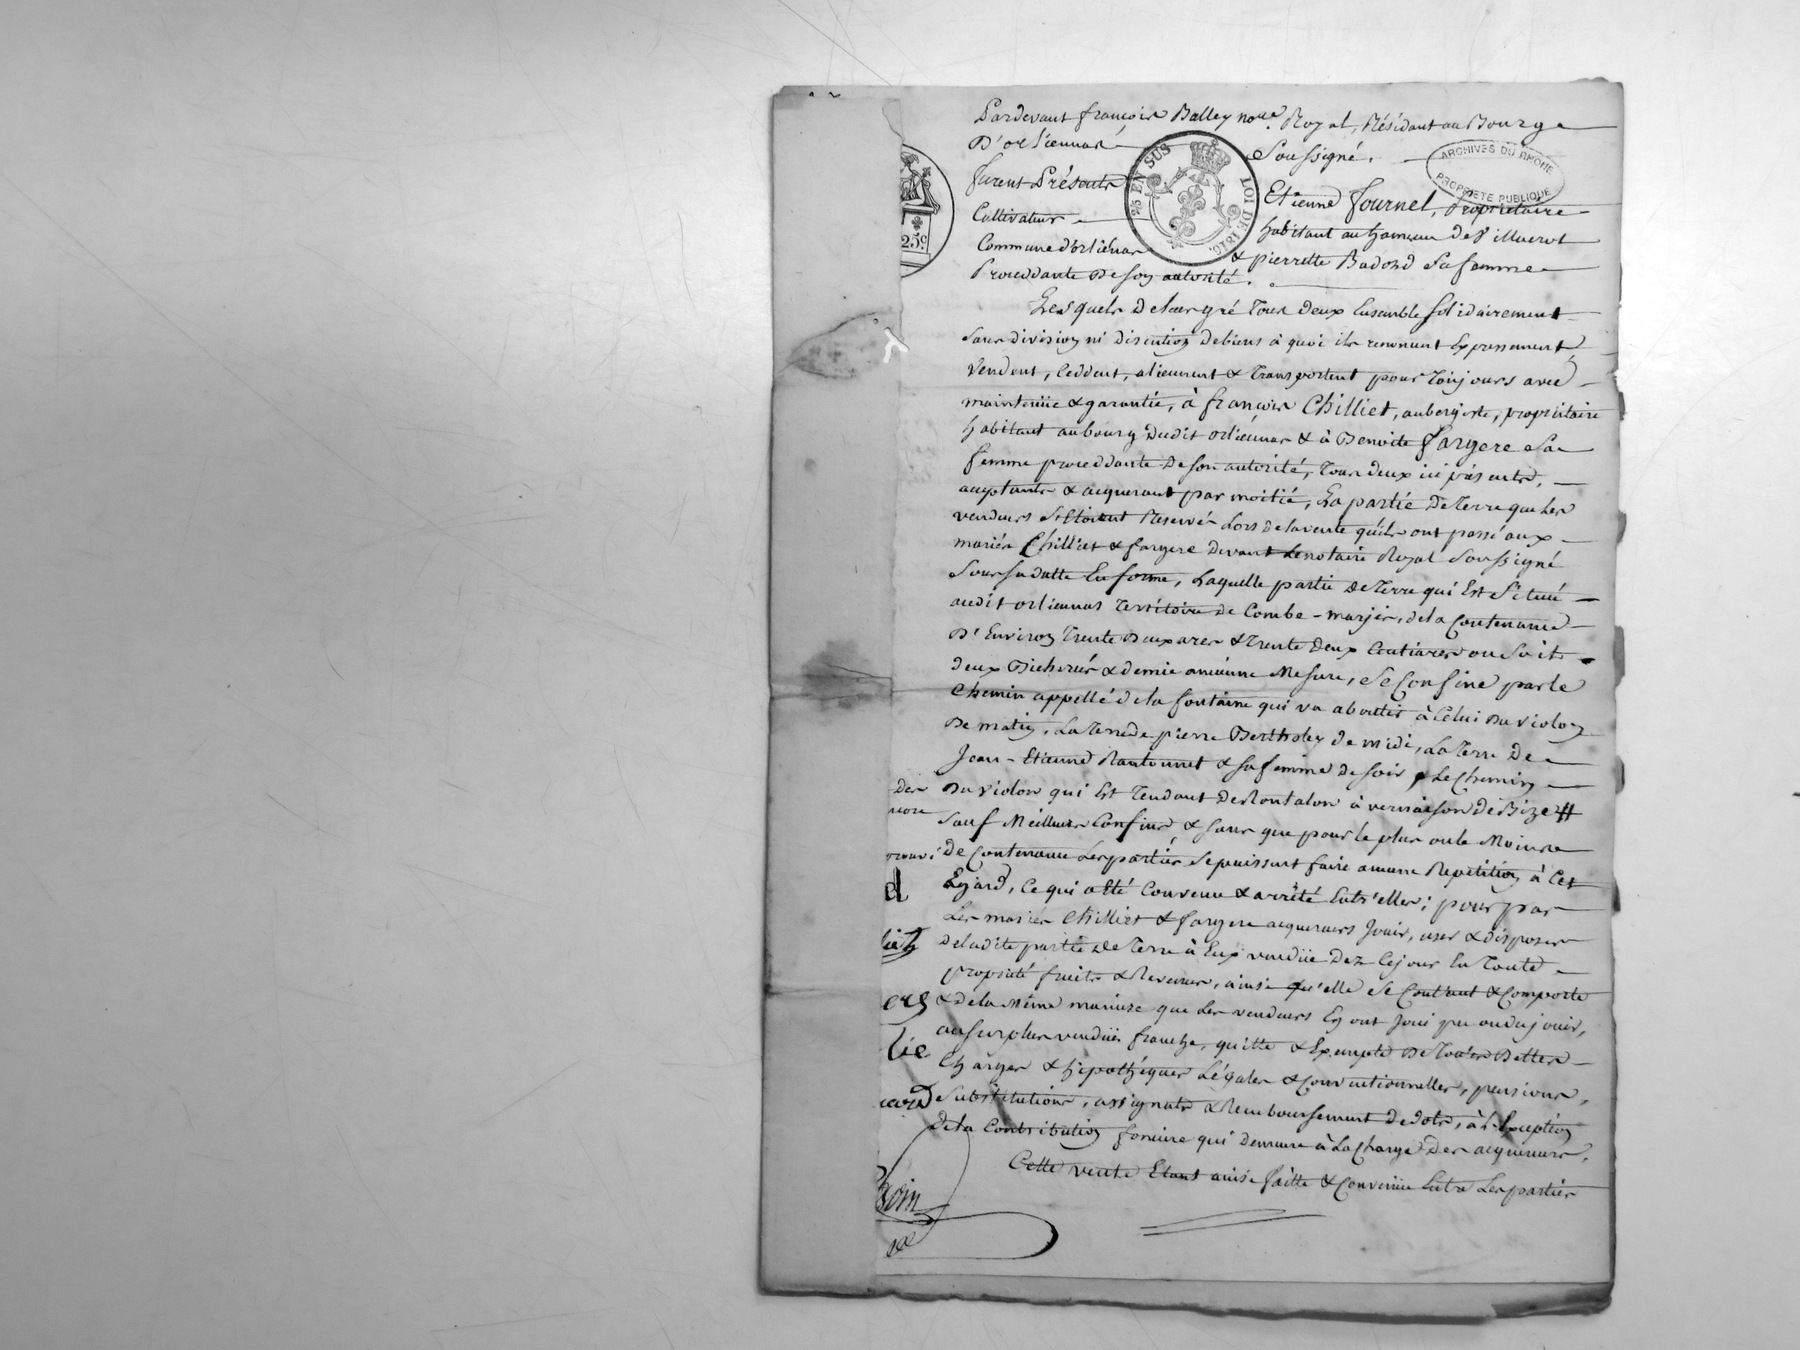 Pardevant françois Balley no.re Royal, Résidant au Bourg
D'orliennas soussigné.
furent Présents Etienne fournel, Propriétaire
Cultivateur habitant au hameau de Villuerot
Commune d'orliénas & pierrette Badord sa femme
Proceddante de son autorité.
Lesquels de leur gré Tous deux Ensemble solidairement
sans division ni discution de biens à quoi ils renoncent Expressement,
Vendent, Ceddent, alienent & transportent pour Toujours avec
maintenüe & garantie, à françois Chilliet, aubergiste, propriétaire
habitant au bourg dudit orliénas & à Benoite fargere sa
femme proceddante de son autorité, Tous deux ici présents,
acceptants & acquerant par moitié, La partie de Terre que Les
vendeurs s'Etoient Reservés Lors de la vente qu'ils ont passé aux
mariés Chilliet & fargere devant Le notaire Royal soussigné
sous sa datte En forme, Laquelle partie de Terre qui Est Située
audit orliennas Territoire de Combe-marjis, de la Contenance
D'Environ Trente Deux ares & trente deux Centiares ou soit
deux Bicherés & demie ancienne Mesure, se Confine par le
Chemin appellé de la fontaine qui va aboutir à Celui du violon
de matin, La Terre de pierre Bertholey de midi, La Terre de
Jean-Etienne Rantonnet & sa femme de soir & Le Chemin
du violon qui Est Tendant de Montalon à vernaison de Bize #
sauf Meilleurs Confins, & sans que pour le plus ou le Moins
de Contenance Les parties se puissent faire aucune Repetition à Cet
Egard, Ce qui a Eté Convenu & arrêté Entr'elles; pour par
Les mariés Chilliet & fargere acquereurs Jouir, user & disposer
de ladite partie de Terre à Eux vendüe dez Cejour En Toute
propriété fruits & Revenus, ainsi qu'elle se Contient & Comporte
& de la Même maniere que Les vendeurs En ont Joui pu ou du jouir,
au surplus vendüe franche, quitte & Exempte de Toutes Dettes
Charges & hipothéques Légales & Conventionnelles, pensions,
substitutions, assignats & Remboursement de dots, à L'Exception
de la Contribution fonciere qui demeure à La Charge des acquereurs.
Cette vente Etant ainsi faitte & Convenüe Entre Les parties
25 EN SUS
LOI DE 1816.
25 c
ARCHIVES DU RHONE
PROPRIETE PUBLIQUE
des
d
ers
lie